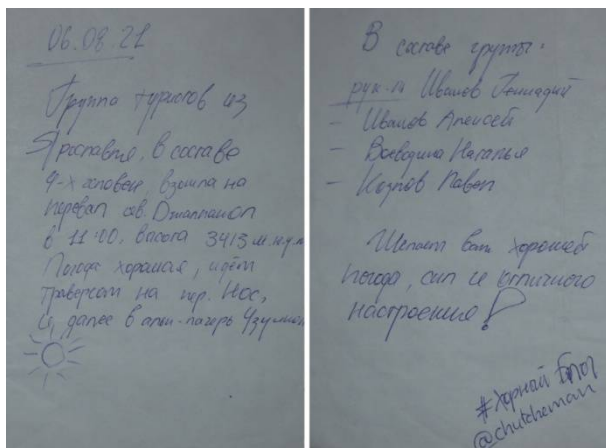 06.08.21
Группа туристов из
Ярославля, в составе
4-х человек, взошла на
перевал
в 11:00, высота 3413 м.н.у.м
Погода хорошая, идём
траверсом на пер. Нос,
и далее в альп-лагерь Узункол
В составе группы:
рук-ль Иванов Геннадий
- Иванов Алексей
- Воеводина Наталья
- Козлов Павел
Желаем вам хорошей
погоды, сил и отличного
настроения!
#Хорнай блог
@chutcheman